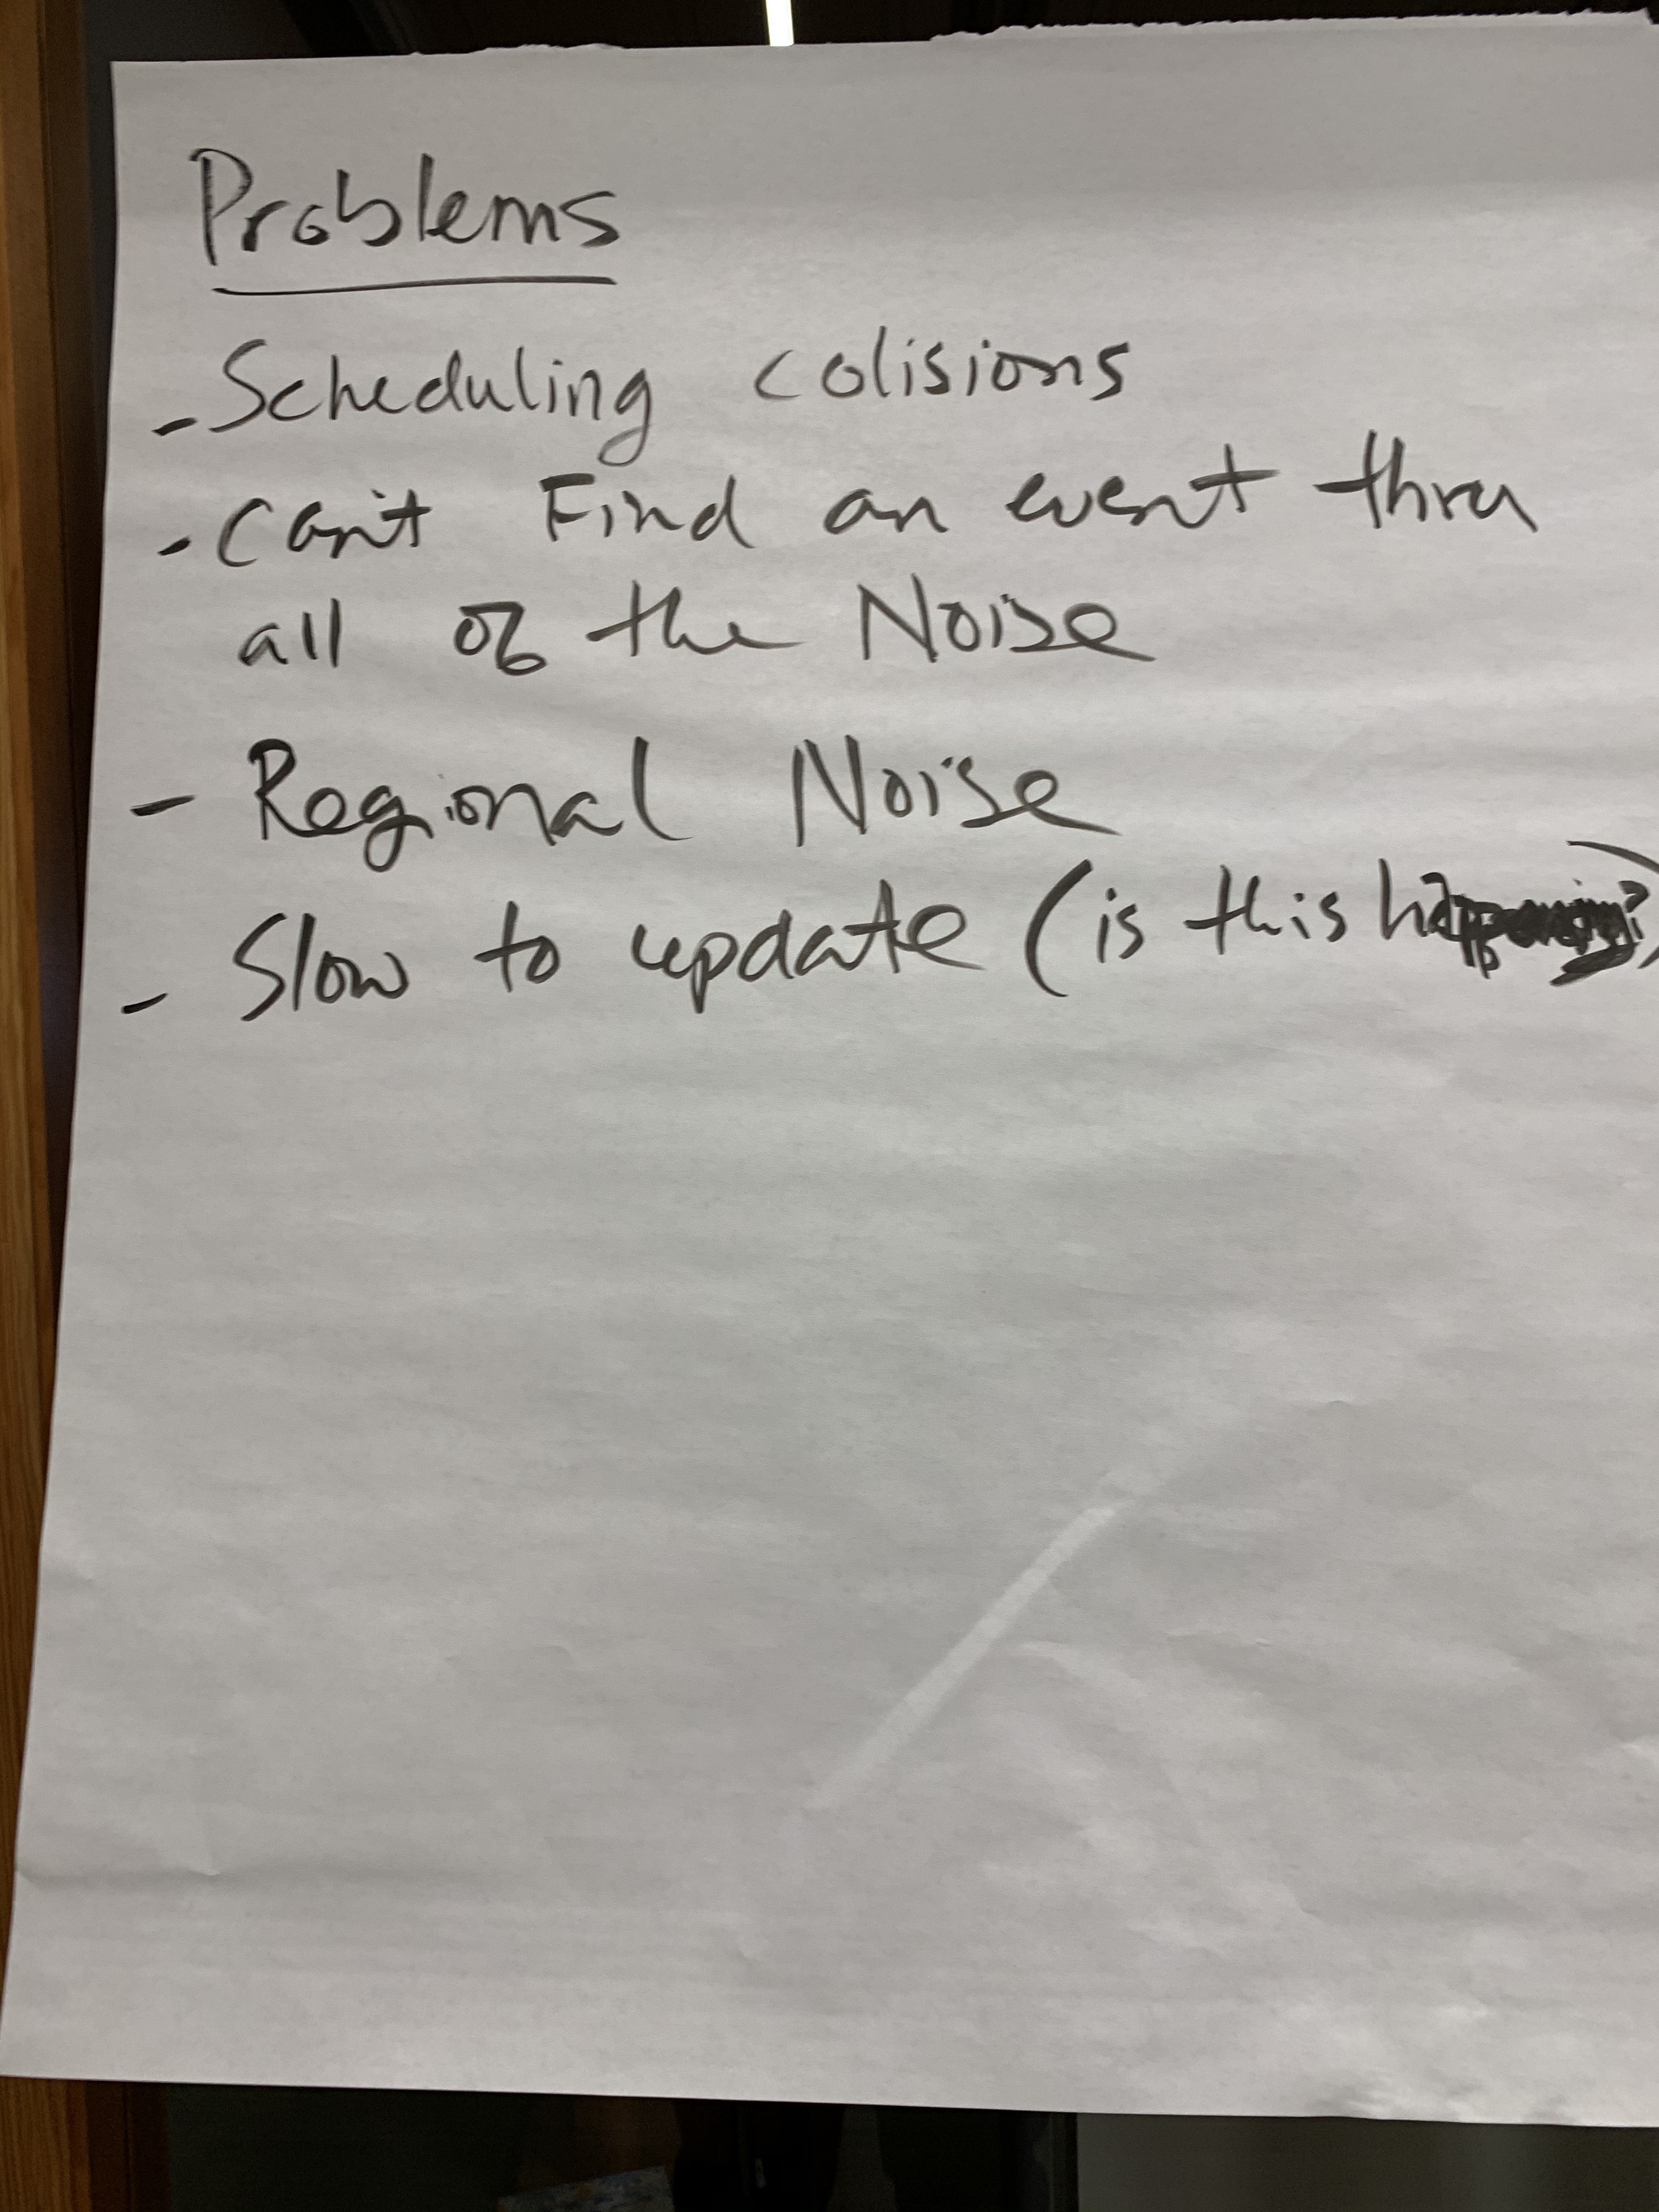 Problems
- Scheduling colisions
- Can't Find an event thru
all of the Noise
- Regional Noise
- Slow to update (is this happening?)